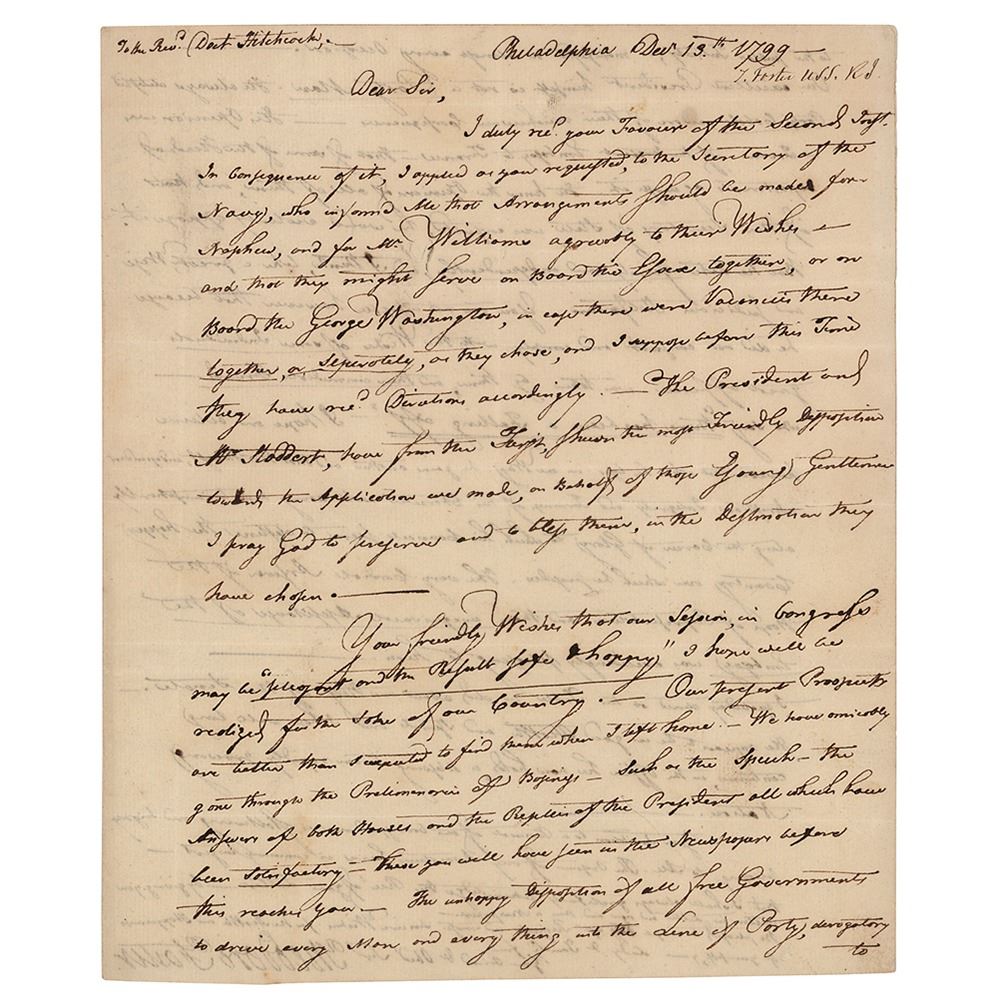 To the Rev.d Doct Hitchcock,—
Philadelphia Dec.r 13.th 1799—
T. Foster USS. RI.
Dear Sir,
I duly rec.d your Favour of the Second Inst.
In Consequence of it, I applied as you requested, to the Secretary of the
Navy, who informd Me that Arrangements should be made for
Nephew, and for Mr. Williams agreeably to their Wishes —
and that they might serve on Board the Essex together, or on
Board the George Washington, in case there were Vacancies there
together, or seperately, as they chose, and I suppose before this Time
they have rec.d Directions accordingly. — The President and
Mr. Stoddert, have from the First, shewn the most Friendly Disposition
towards the Application we made, on Behalf of those Young Gentlemen
I pray God to preserve and to bless them, in the Destination they
have chosen. —
Your friendly Wishes that our Session, in Congress
may be "pleasant and the Result safe & happy" I hope will be
realized for the Sake of our Country. — Our present Prospects
are better than I expected to find them when I left home. — We have amicably
gone through the Prelimenaries of Business — such as the Speech — the
Answers of both Houses and the Replies of the President all which have
been satisfactory — These you will have seen in the Newspapers before
this reaches You — The unhappy Disposition of all free Governments
to drive every Man and every thing into the Line of Party, derogatory
to